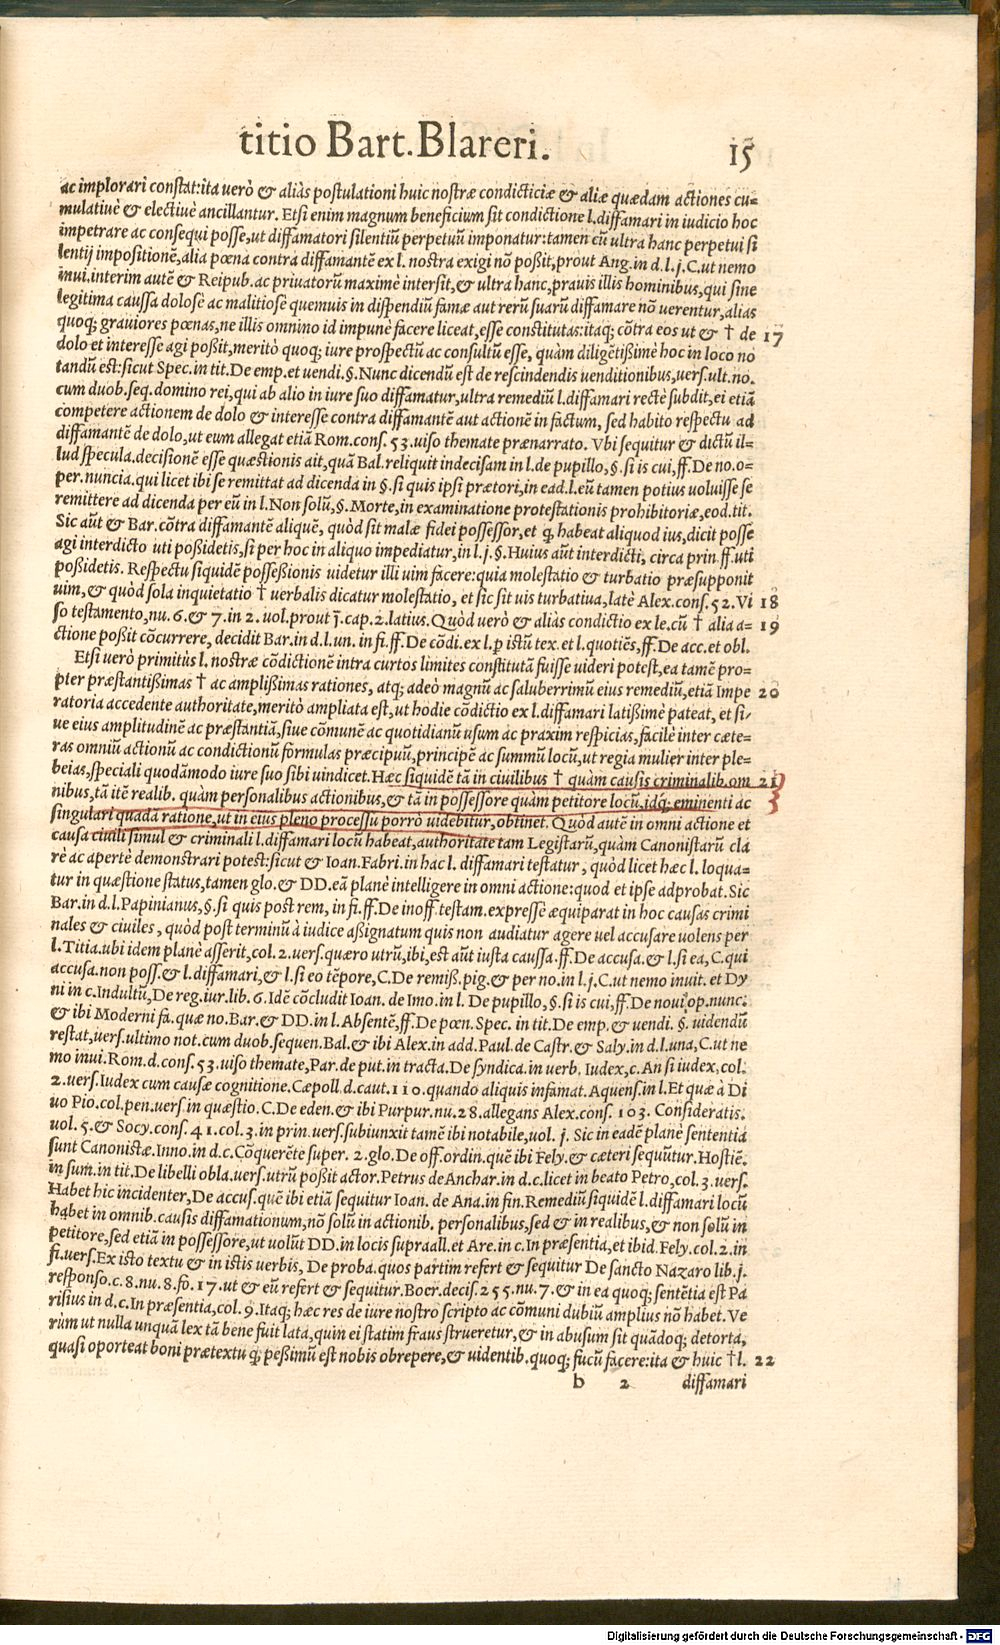 titio Bart. Blareri. 15
ac implorari constat: ita uerò & aliàs postulationi huic nostræ condicticiæ & aliæ quædam actiones cu=
mulatiuè & electiuè ancillantur. Etsi enim magnum beneficium sit condictione l. diffamari in iudicio hoc
impetrare ac consequi posse, ut diffamatori silentiũ perpetuũ imponatur: tamen cũ ultra hanc perpetui si
lentij impositionẽ, alia pœna contra diffamantẽ ex l. nostra exigi nõ poßit, prout Ang. in d. l. j. C. ut nemo
inui. interim autẽ & Reipub. ac priuatorũ maximè intersit, & ultra hanc, prauis illis hominibus, qui sine
legitima caussa dolosè ac malitiosè quemuis in dispendiũ famæ aut rerũ suarũ diffamare nõ uerentur, alias
quoq; grauiores pœnas, ne illis omnino id impunè facere liceat, esse constitutas: itaq; cõtra eos ut & † de 17
dolo et interesse agi poßit, meritò quoq; iure prospectũ ac consultũ esse, quàm diligẽtißimè hoc in loco no
tandũ est: sicut Spec. in tit. De emp. et uendi. §. Nunc dicendũ est de rescindendis uenditionibus, uers. ult. no.
cum duob. seq. domino rei, qui ab alio in iure suo diffamatur, ultra remediũ l. diffamari rectè subdit, ei etiã
competere actionem de dolo & interesse contra diffamantẽ aut actionẽ in factum, sed habito respectu ad
diffamantẽ de dolo, ut eum allegat etiã Rom. cons. 53. uiso themate prænarrato. Vbi sequitur & dictũ il=
lud specula. decisionẽ esse quæstionis ait, quã Bal. reliquit indecisam in l. de pupillo, §. si is cui, ff. De no. o=
per. nuncia. qui licet ibi se remittat ad dicenda in §. si quis ipsi prætori, in ead. l. eũ tamen potius uoluisse se
remittere ad dicenda per eũ in l. Non solũ, §. Morte, in examinatione protestationis prohibitoriæ, eod. tit.
Sic aũt & Bar. cõtra diffamantẽ aliquẽ, quòd sit malæ fidei possessor, et ꝙ habeat aliquod ius, dicit posse
agi interdicto uti poßidetis, si per hoc in aliquo impediatur, in l. j. §. Huius aũt interdicti, circa prin. ff. uti
poßidetis. Respectu siquidẽ posseßionis uidetur illi uim facere: quia molestatio & turbatio præsupponit
uim, & quòd sola inquietatio † uerbalis dicatur molestatio, et sic sit uis turbatiua, latè Alex. cons. 52. Vi 18
so testamento, nu. 6. & 7. in 2. uol. prout j̃. cap. 2. latius. Quòd uerò & aliàs condictio ex le. cũ † alia a= 19
ctione poßit cõcurrere, decidit Bar. in d. l. un. in fi. ff. De cõdi. ex l. ꝑ istũ tex. et l. quotiẽs, ff. De acc. et obl.
Etsi uerò primitùs l. nostræ cõdictionẽ intra curtos limites constitutã fuisse uideri potest, ea tamẽ pro=
pter præstantißimas † ac amplißimas rationes, atq; adeò magnũ ac saluberrimũ eius remediũ, etiã Impe 20
ratoria accedente authoritate, meritò ampliata est, ut hodie cõdictio ex l. diffamari latißimè pateat, et si=
ue eius amplitudinẽ ac præstantiã, siue cõmunẽ ac quotidianũ usum ac praxim respicias, facilè inter cæte=
ras omniũ actionũ ac condictionũ formulas præcipuũ, principẽ ac summũ locũ, ut regia mulier inter ple=
beias, speciali quodãmodo iure suo sibi uindicet. Hæc siquidẽ tã in ciuilibus † quàm causis criminalib. om 21
nibus, tã itẽ realib. quàm personalibus actionibus, & tã in possessore quàm petitore locũ, idq; eminenti ac
singulari quadã ratione, ut in eius pleno processu porrò uidebitur, obtinet. Quòd autẽ in omni actione et
causa ciuili simul & criminali l. diffamari locũ habeat, authoritate tam Legistarũ, quàm Canonistarũ cla
rè ac apertè demonstrari potest: sicut & Ioan. Fabri. in hac l. diffamari testatur, quòd licet hæc l. loqua=
tur in quæstione status, tamen glo. & DD. eã planè intelligere in omni actione: quod et ipse adprobat. Sic
Bar. in d. l. Papinianus, §. si quis post rem, in fi. ff. De inoff. testam. expressè æquiparat in hoc causas crimi
nales & ciuiles, quòd post terminũ à iudice aßignatum quis non audiatur agere uel accusare uolens per
l. Titia. ubi idem planè asserit, col. 2. uers. quæro utrũ, ibi, est aũt iusta caussa. ff. De accusa. & l. si ea, C. qui
accusa. non poss. & l. diffamari, & l. si eo tẽpore, C. De remiß. pig. & per no. in l. j. C. ut nemo inuit. et Dy
ni in c. Indultũ, De reg. iur. lib. 6. Idẽ cõcludit Ioan. de Imo. in l. De pupillo, §. si is cui, ff. De noui op. nunc.
& ibi Moderni fa. quæ no. Bar. & DD. in l. Absentẽ, ff. De pœn. Spec. in tit. De emp. & uendi. §. uidendũ
restat, uers. ultimo not. cum duob. sequen. Bal. & ibi Alex. in add. Paul. de Castr. & Saly. in d. l. una, C. ut ne
mo inui. Rom. d. cons. 53. uiso themate, Par. de put. in tracta. De syndica. in uerb. Iudex, c. An si iudex, col.
2. uers. Iudex cum causæ cognitione. Cæpoll. d. caut. 110. quando aliquis infamat. Aquens. in l. Et quæ à Di
uo Pio. col. pen. uers. in quæstio. C. De eden. & ibi Purpur. nu. 28. allegans Alex. cons. 103. Consideratis.
uol. 5. & Socy. cons. 41. col. 3. in prin. uers. subiunxit tamẽ ibi notabile, uol. j. Sic in eadẽ planè sententia
sunt Canonistæ. Inno. in d. c. Cõquerẽte super. 2. glo. De off. ordin. quẽ ibi Fely. & cæteri sequũtur. Hostiẽ.
in sum. in tit. De libelli obla. uers. utrũ poßit actor. Petrus de Anchar. in d. c. licet in beato Petro, col. 3. uers.
Habet hic incidenter, De accus. quẽ ibi etiã sequitur Ioan. de Ana. in fin. Remediũ siquidẽ l. diffamari locũ
habet in omnib. causis diffamationum, nõ solũ in actionib. personalibus, sed & in realibus, & non solũ in
petitore, sed etiã in possessore, ut uolũt DD. in locis supra all. et Are. in c. In præsentia, et ibid. Fely. col. 2. in
fi. uers. Ex isto textu & in istis uerbis, De proba. quos partim refert & sequitur De sancto Nazaro lib. j.
responso. c. 8. nu. 8. fo. 17. ut & eũ refert & sequitur. Boer. decis. 255. nu. 7. & in ea quoq; sentẽtia est Pa
risius in d. c. In præsentia, col. 9. Itaq; hæc res de iure nostro scripto ac cõmuni dubiũ amplius nõ habet. Ve
rùm ut nulla unquã lex tã bene fuit lata, quin ei statim fraus strueretur, & in abusum sit quãdoq; detorta,
quasi oporteat boni prætextu ꝙ peßimũ est nobis obrepere, & uidentib. quoq; fucũ facere: ita & huic † l. 22
b 2 diffamari
Digitalisierung gefördert durch die Deutsche Forschungsgemeinschaft - DFG